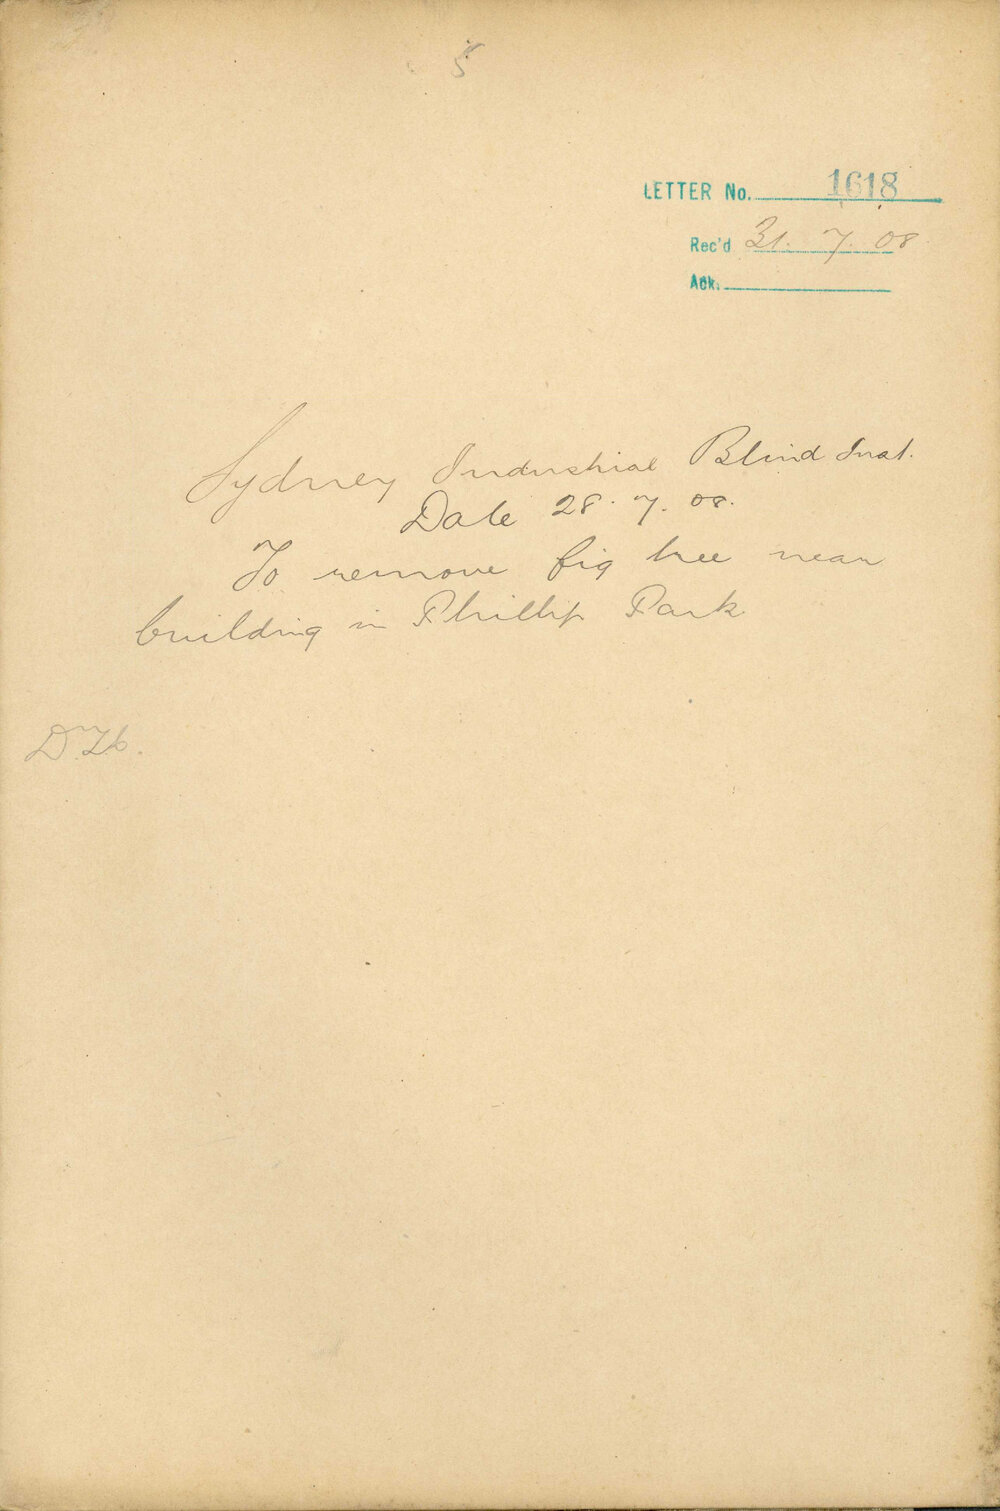 5
LETTER No. 1618
Rec'd 31. 7. 08.
Ack.
Sydney Industrial Blind Inst.
Date 28. 7. 08.
To remove fig tree near
building in Phillip Park